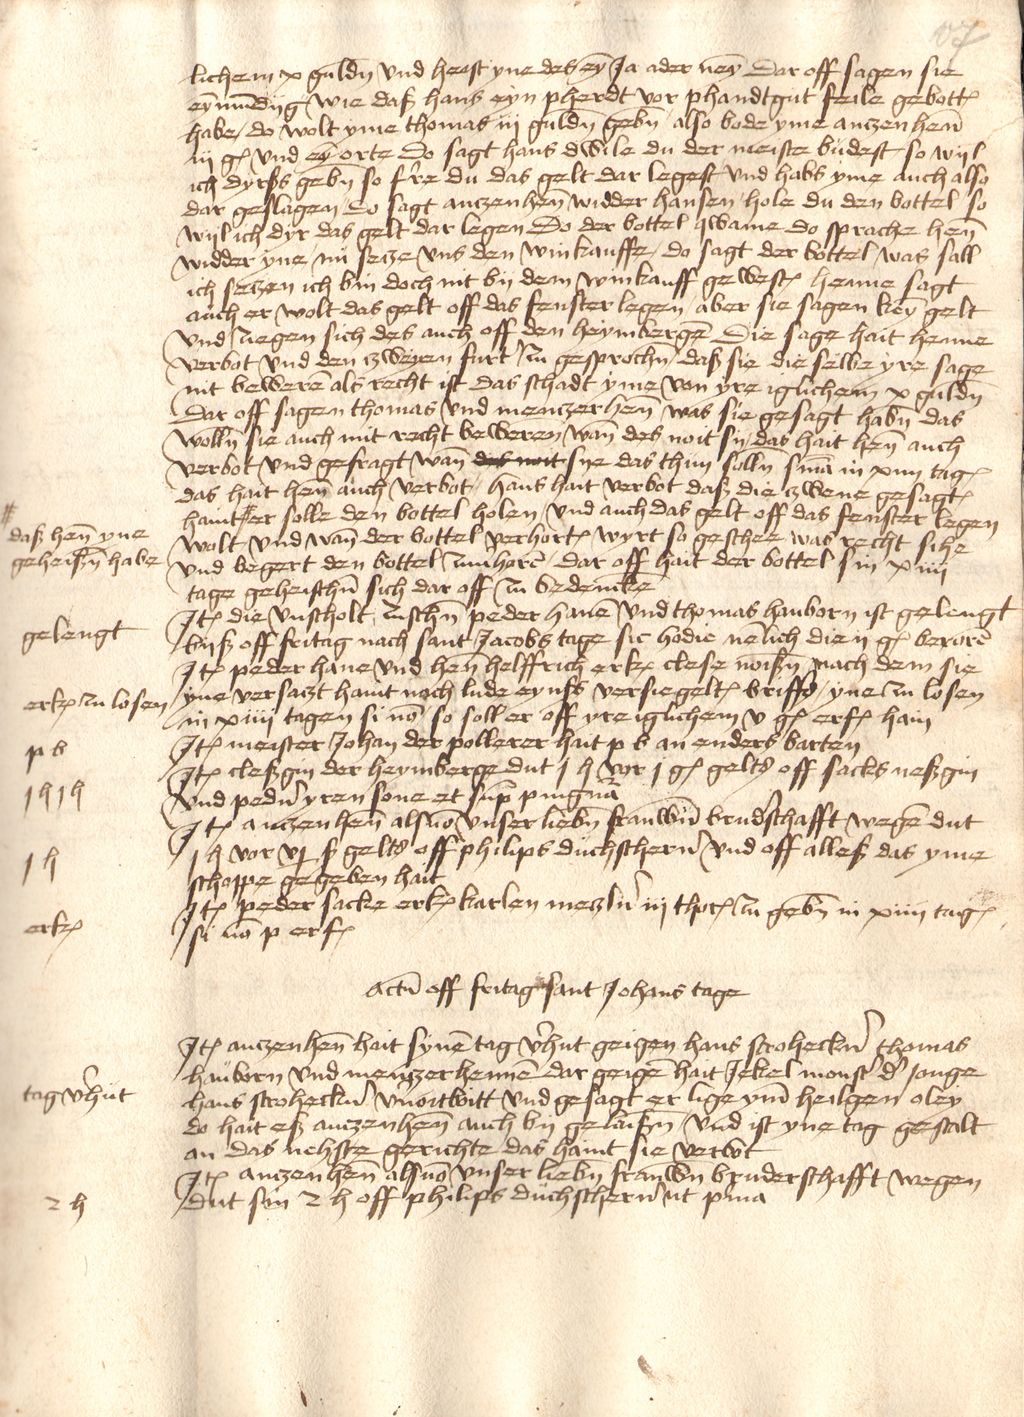 lichem x guldn̄ vnd heist yne des eȳ Ja ader neȳ Dar off sagen sie
eȳmūdig wie daß hans eyn pherdt vor phandtgut feile gebott᷑
habe / do wolt yme thomas iij guldn̄ gebn̄ / also bode yme anczenhen̄
iij g᷑ vnd eȳ orte Do sagt hans dwile du der meiste budest so wijl
ich dyrß gebn̄ so f're du das gelt dar legest vnd habs yme auch also
dar geslagen / do sagt anczenhen̄ widder hansen / hole du den bottel so
wijl ich dyr das gelt dar legen Do der bottel qwame do sprache hen̄
widder yne nū secze vns den winkauffe / do sagt der bottel / was sall
ich seczen ich bin doch nit bij dem winkauff gewest᷑ henne sagt
auch er wolt das gelt off das fenster legen / aber sie sagen keȳ gelt
vnd zugen sich des auch off den heymbergē Die sage hait henne
verbot vnd den zweyen furt' zu gesprochn̄ / daß sie die selbe yre sage
nit bewerē als recht ist das schadt yme von yre iglichem x guldn̄
Dar off sagen thomas vnd menczerhen̄ was sie gesagt habn̄ das
wolln̄ sie auch mit recht beweren wan̄ des noit sij das hait hen̄ auch
verbot vnd gefragt wan̄ des noit sye das thun solln̄ sm̄a in xiiij tag᷑
das hait hen̄ auch verbot / hans hait verbot daß die zwene gesagt᷑
haint # er solle den bottel holen / vnd auch das gelt off das fenster legen
# daß hen̄ yne
geheißn̄ habe
wolt vnd wan̄ der bottel verhort᷑ wyrt so geschee was recht sihe
vnd begert den bottel zuuhorē / dar off hait der bottel sin xiiij
tage geheischn̄ sich dar off zu bedencke
gelengt
It᷑ die vnscholt zuschn̄ peder hanē vnd thomas hanborn ist gelengt
biß off fritag nach sant Jacobs tage sic hodie nēlich die ij g᷑ berorē
It᷑ peder hane vnd hen̄ helffrich erk᷑ clese noißn̄ nach dem sie
erk᷑ zu losen
yne versaczt haint noch lude eynß versiegelt᷑ briffs / yne zu losen
in xiiij tagen si nō so soll er off yre iglichem v g᷑ erf᷑ hain
p b
It᷑ meister Johan der pollerer hait p b an enders barten
1 h 1 h
It᷑ cleßgin der heymberge dut 1 h vor 1 g᷑ gelts off sacks neßgin
vnd pedn̄ yren sone et sup̄ pingnā
It᷑ anczenhen̄ als vō vnser liebn̄ frauwn̄ brud'schafft wegē dut
1 h
1 h vor vj ß gelts off philips duchschern̄ vnd off alleß das yme
schoppe gegeben hait
erk᷑
It᷑ peder sacke erk᷑ karlen meczler iij thor᷑ zu gebn̄ in xiiij tag᷑
si nō p erf᷑
Actū off fritag sant Johans tage
It᷑ anczenhen̄ hait synē tag v'hut geigen hans stroheckn̄ thomas
tag v'hut
hanborn vnd menczerhennē dar geigē hait Jekel monst' d' jonge
hans stroheckn̄ vnoitbott vnd gesagt er lige ym heilgen oley
do hait eß anczenhen̄ auch bij gelaißn̄ / vnd ist yne tag gestalt
an das nehste gerichte das haint sie verbot
It᷑ anczenhen̄ als vō vnser liebn̄ frauwn̄ bruderschafft wegen
2 h
dut sin 2 h off philips duchschern̄ ut pma